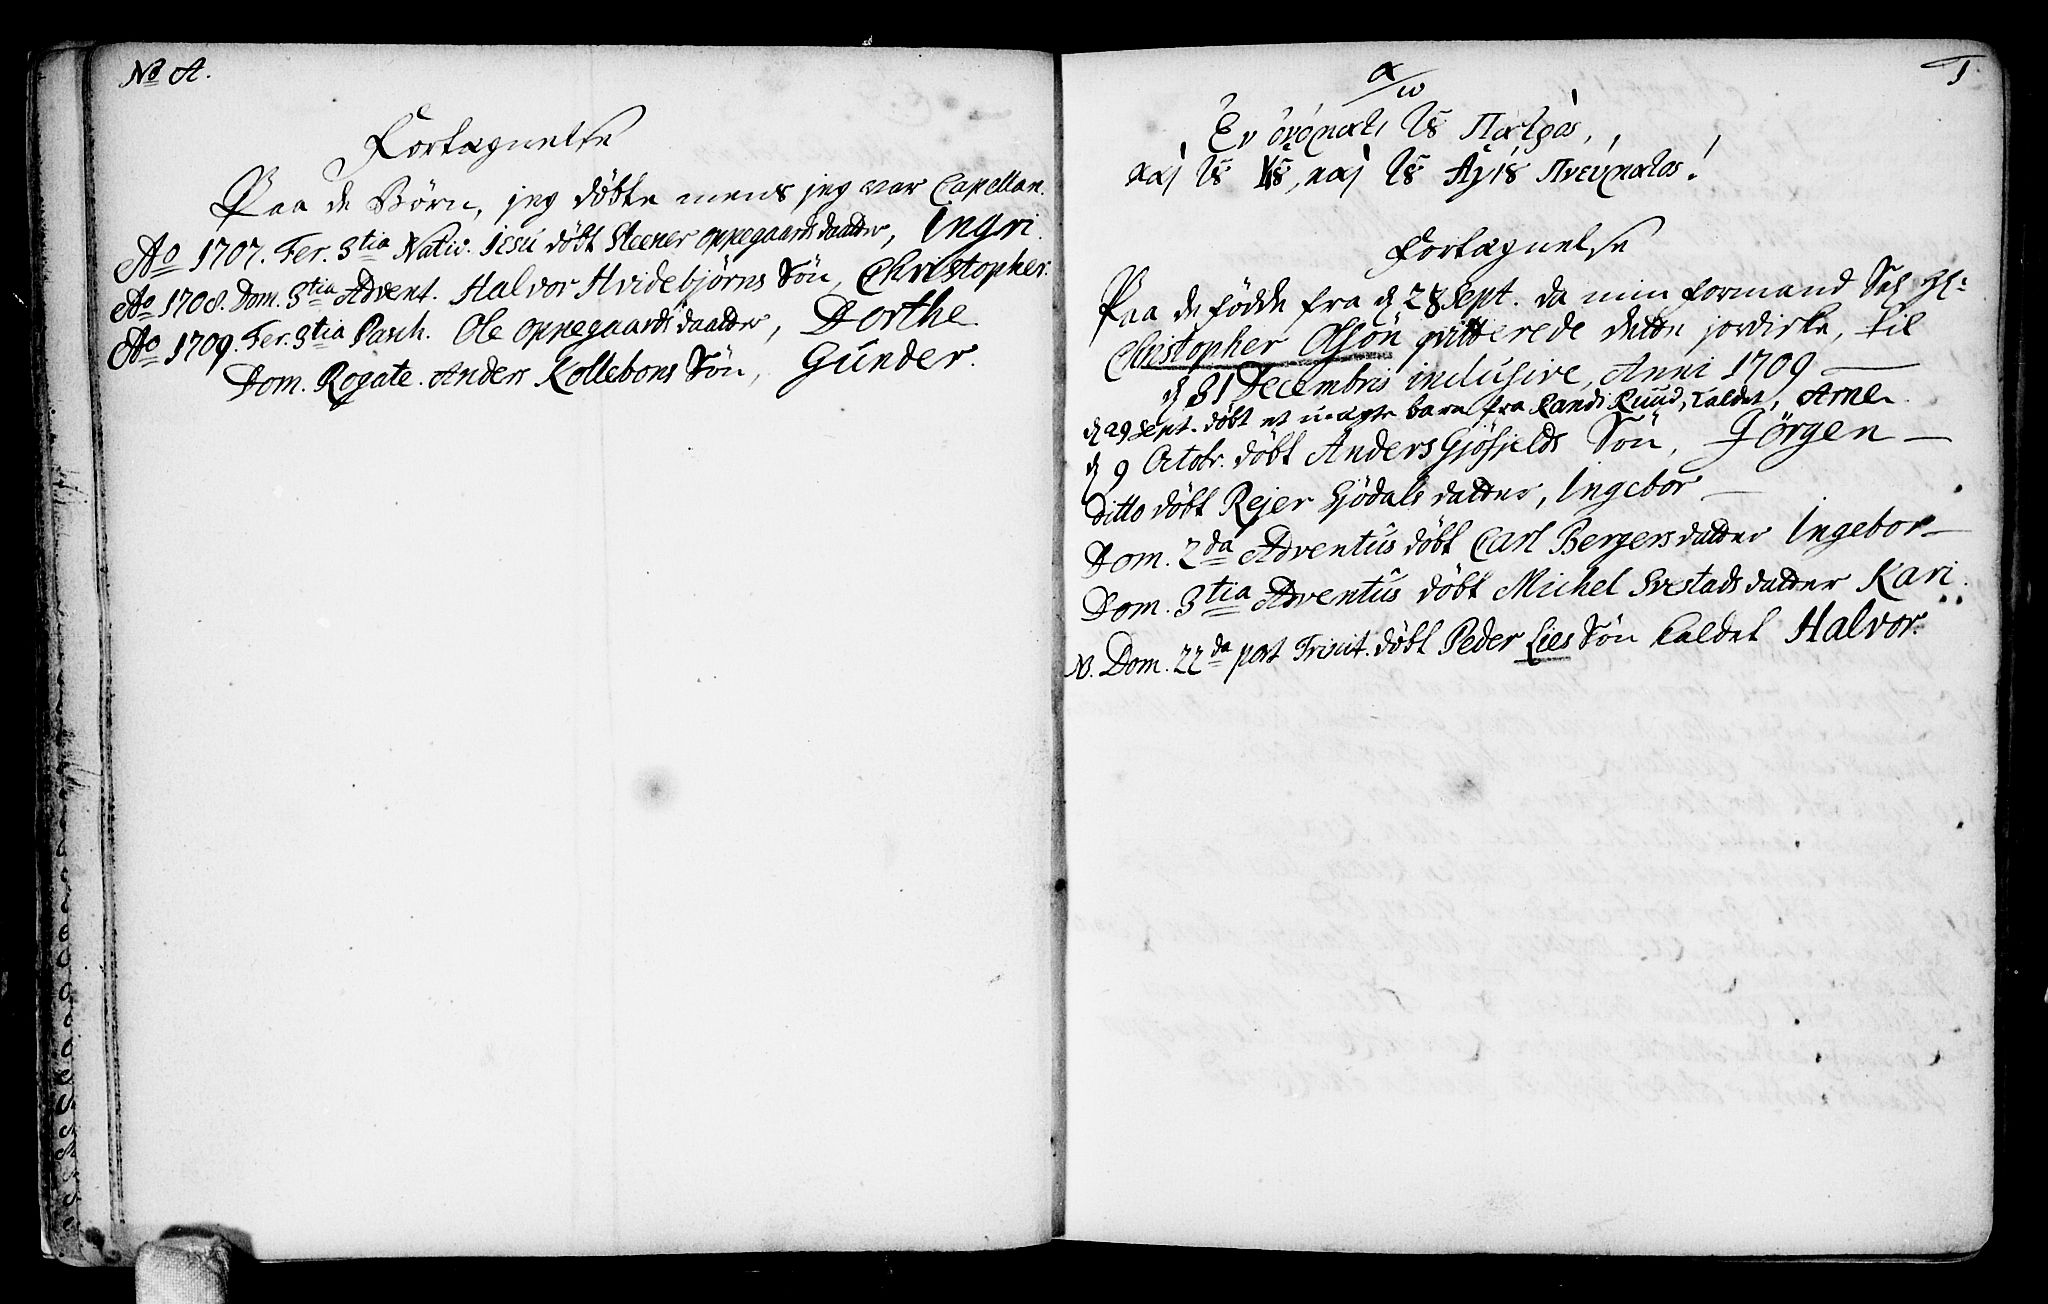 No A.
Fortægnelse
Paa de Börn, jeg döbte mens jeg var Capellan.
Ao 1707. Fer. 3tia Nativ. Jesu döbt Steener oppegaards daatter, Ingri.
Ao 1708. Dom. 3tia Advent. Halvor Hvidebjörns Sön, Christopher.
Ao 1709. Fer. 3tia Pasch. Ole oppegaards daatter, Dorthe.
Dom. Rogate. Anders Kollebons Sön, Gunder.
1.
α/ω
Ἐν ὀνόματι τȣ Πατρὸς,
καὶ τȣ Υȣ͂, καὶ τȣ Ἁγίȣ Πνεύματος!
Fortægnelse
Paa de födde fra d 28 Sept. da min formand Sal. Hr:
Christopher Olsön qvitterede dette jordiske, til
d 31 Decembris inclusive, Anni 1709
d 29 Sept. döbt et uægte barn fra Randi Ruud, kaldet, Arne.
d 9 Octobr. döbt Anders Gjöfjelds Sön, Jörgen
Ditto döbt Rejer Sjödals datter, Ingebor
Dom. 2da Adventûs döbt Carl Bergers datter Ingebor
Dom. 3tia Adventûs döbt Michel Svestads datter Kari.
N. Dom. 22da post Trinit. döbt Peder Lies Sön kaldet Halvor.